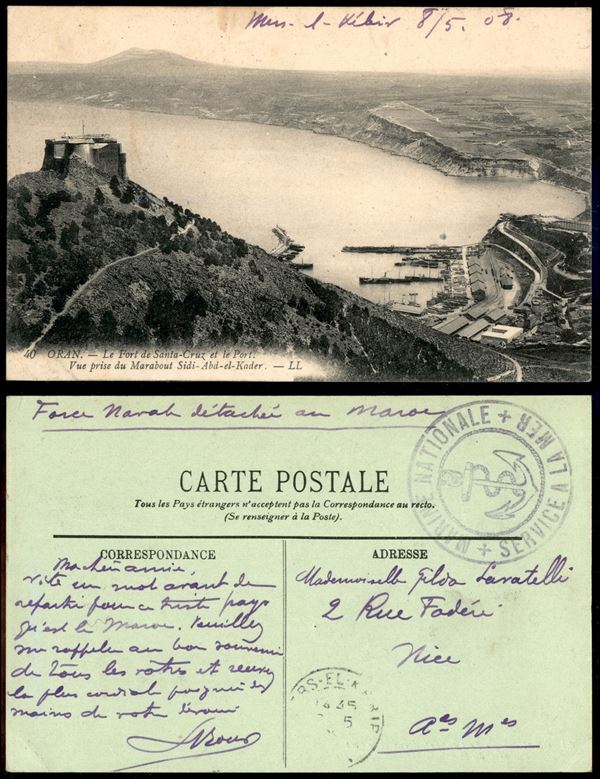 Mers-el-Kébir 8/5.08.
40 ORAN. — Le Fort de Santa-Cruz et le Port.
Vue prise du Marabout Sidi-Abd-el-Kader. — LL
Force Navale détachée au Maroc
MARINE NATIONALE + SERVICE A LA MER +
CARTE POSTALE
Tous les Pays étrangers n'acceptent pas la Correspondance au recto.
(Se renseigner à la Poste).
CORRESPONDANCE
Ma chère amie,
Vite un mot avant de
repartir pour ce triste pays
qu'est le Maroc. Veuillez
me rappeler au bon souvenir
de tous les vôtres et recevez
la plus cordiale poignée de
mains de votre dévoué
ADRESSE
Mademoiselle Gilda Savatelli
2 Rue Fodéré
Nice
Aes Mes
ERS-EL-K
5